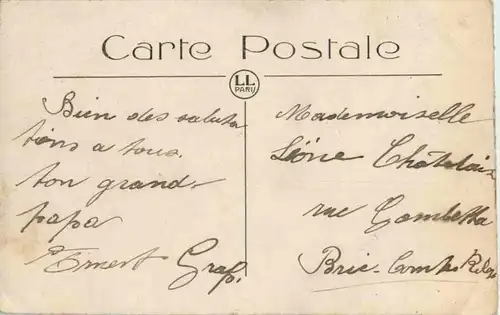 Carte Postale
LL
PARIS
Bien des saluta
tions a tous.
ton grand-
papa
Ernest Graf.
Mademoiselle
Léone Châtelain
rue Gambetta
Brie-Comte Rob